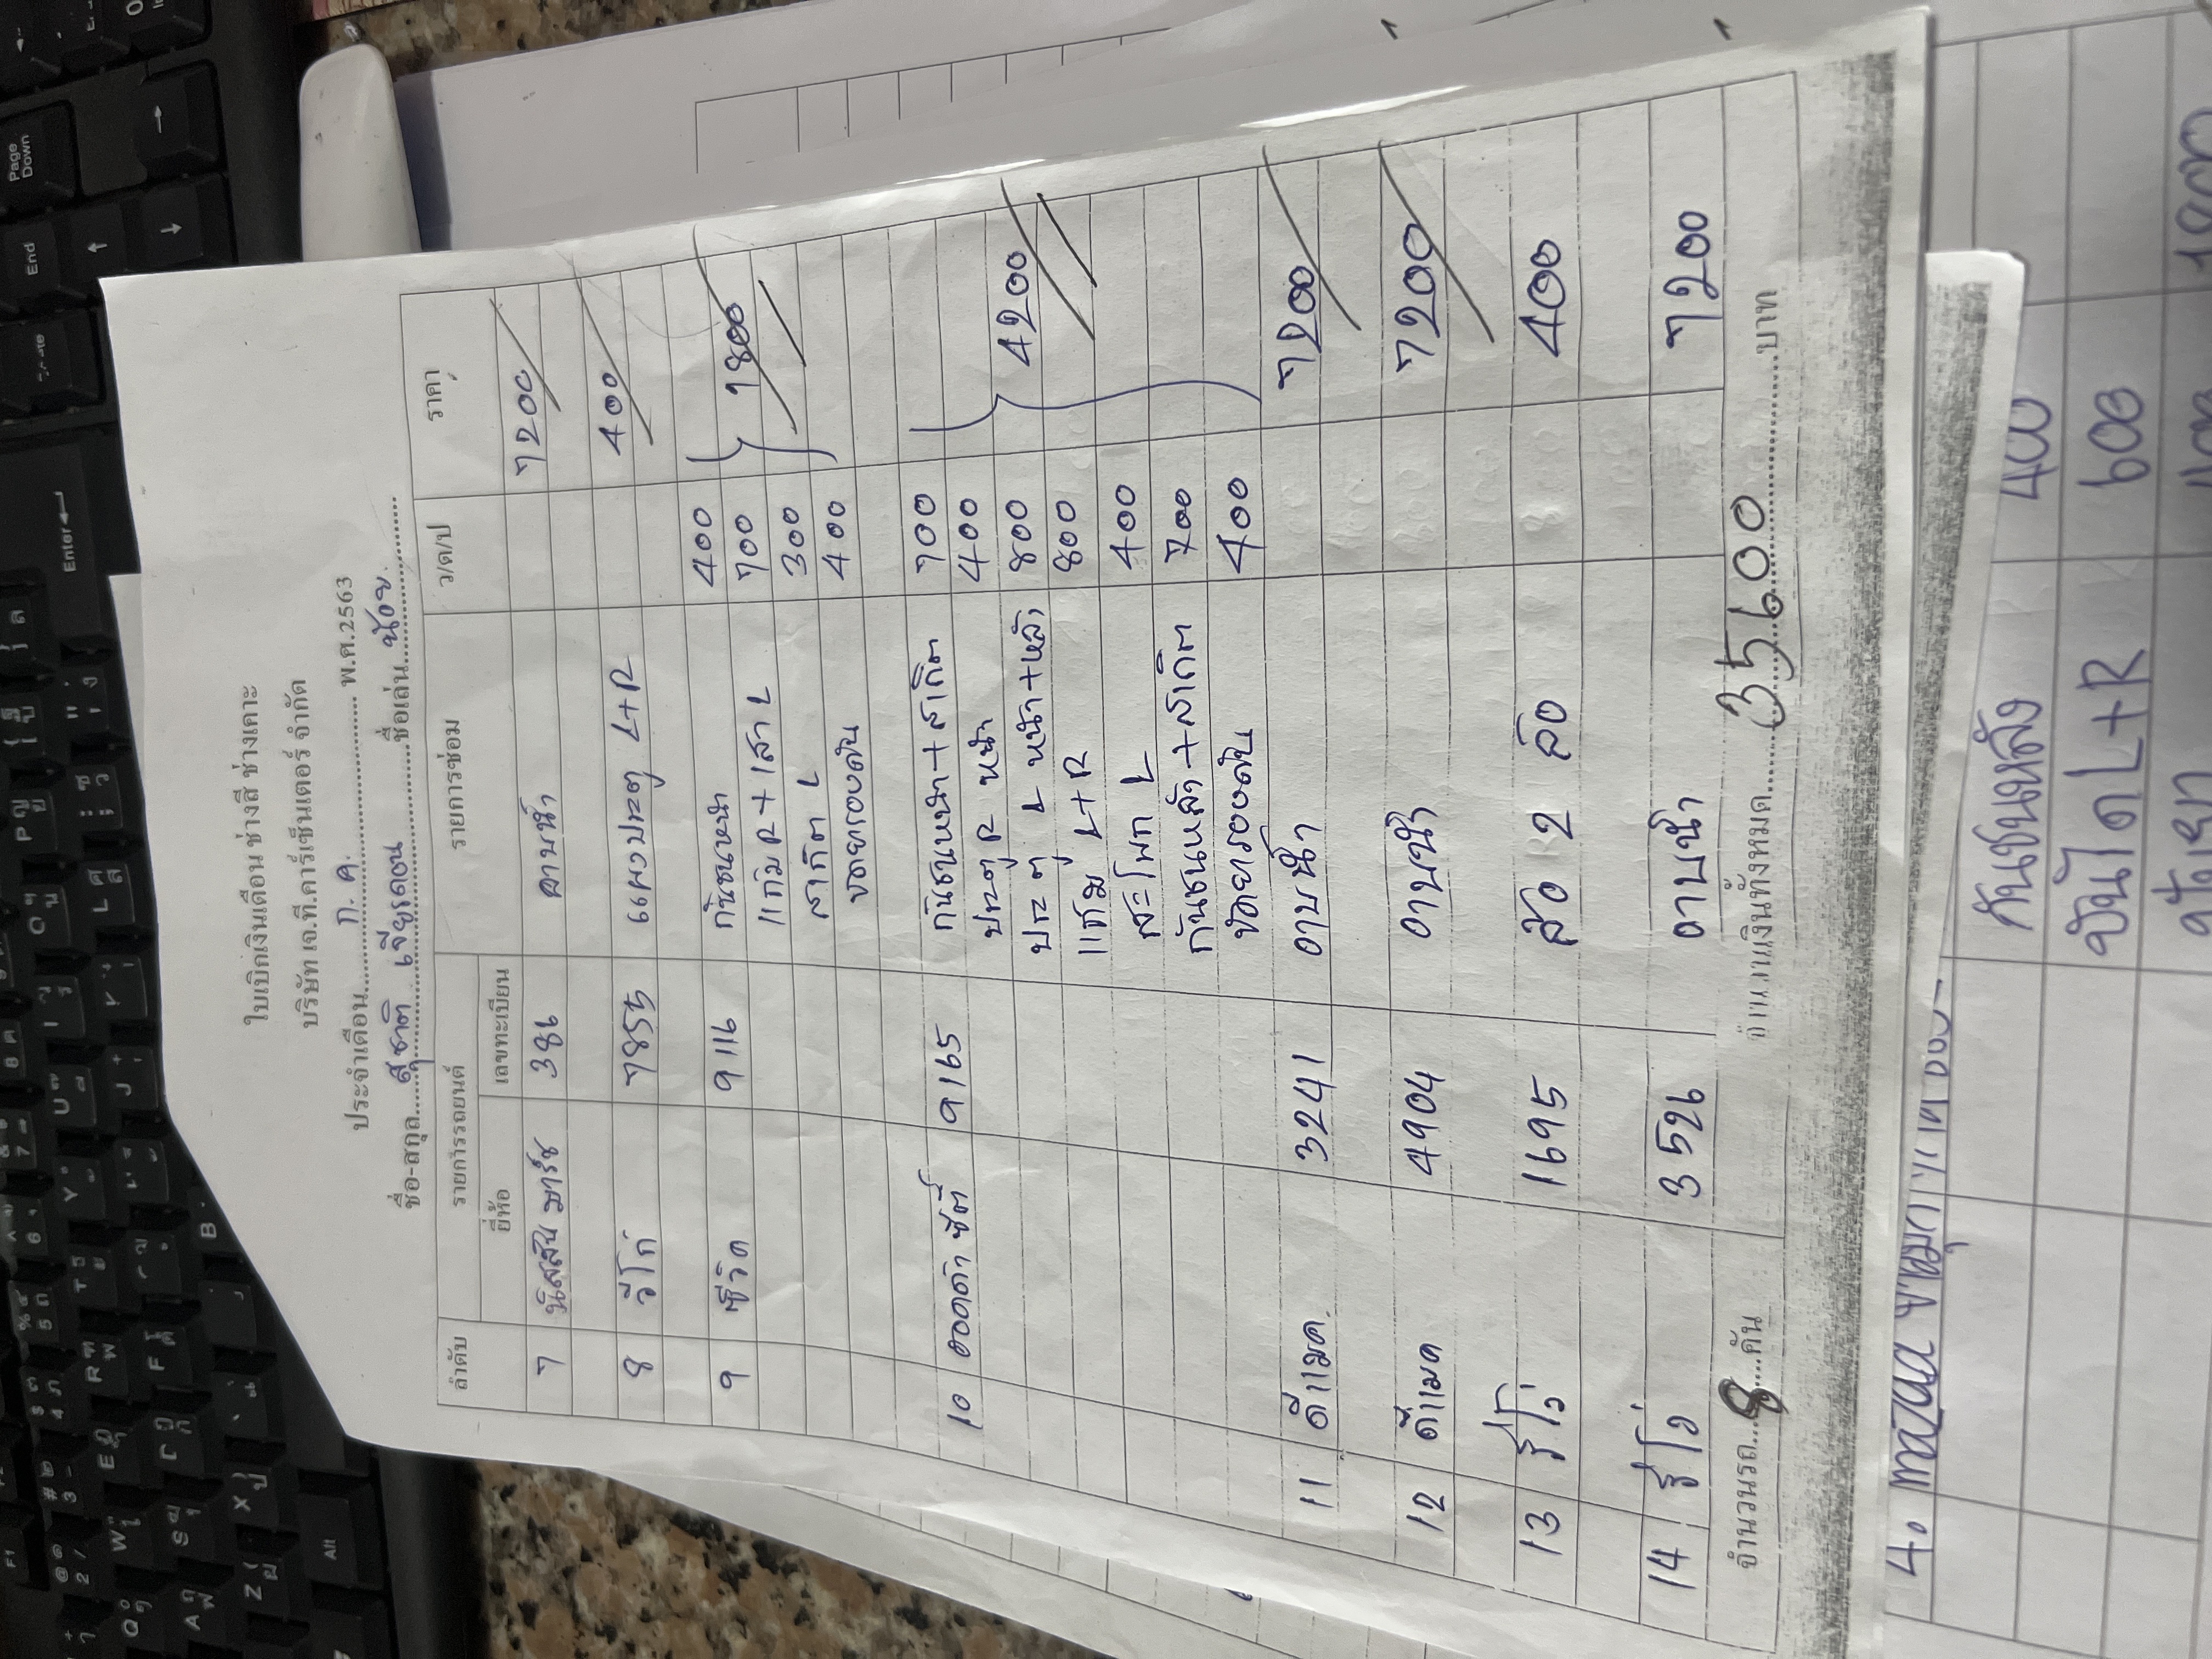 ใบเบิกเงินเดือน ช่างสี ช่างเคาะ
บริษัท เจ.ที.คาร์เซ็นเตอร์ จำกัด
ประจำเดือน ก.ค. พ.ศ.2563
ชื่อ-สกุล สุชาติ เจียรดอน ชื่อเล่น น้อย
ลำดับ รายการรถยนต์ รายการซ่อม ว/ด/ป ราคา
ยี่ห้อ เลขทะเบียน
7 นิสสัน มาร์ช 386 อาบน้ำ 7200
8 วีโก้ 7855 แผงประตู L+R 400
9 ซีวิค 9116 กันชนหน้า 400
แก้ม R + เสา L 700 1800
สเกิต L 300
ชายทรงสปัน 400
10 ฮอนด้า ซิตี้ 9165 กันชนหน้า+สเกิต 700
ประตู R หน้า 400
ประตู L หน้า+หลัง 800 4200
แก้ม L+R 800
สะโพก L 400
กันชนหลัง+สเกิต 700
400
11 ดีแมค 3241 อาบน้ำ 7200
12 ดีแมค 4904 อาบน้ำ 7200
13 รีโว่ 1695 ล้อ 2 ล้อ 400
14 รีโว่ 3526 อาบน้ำ 7200
จำนวนรถ 8 คัน จำนวนเงินทั้งหมด 35600 บาท
4. mazda
กันชนหลัง 400
บันได L+R 600